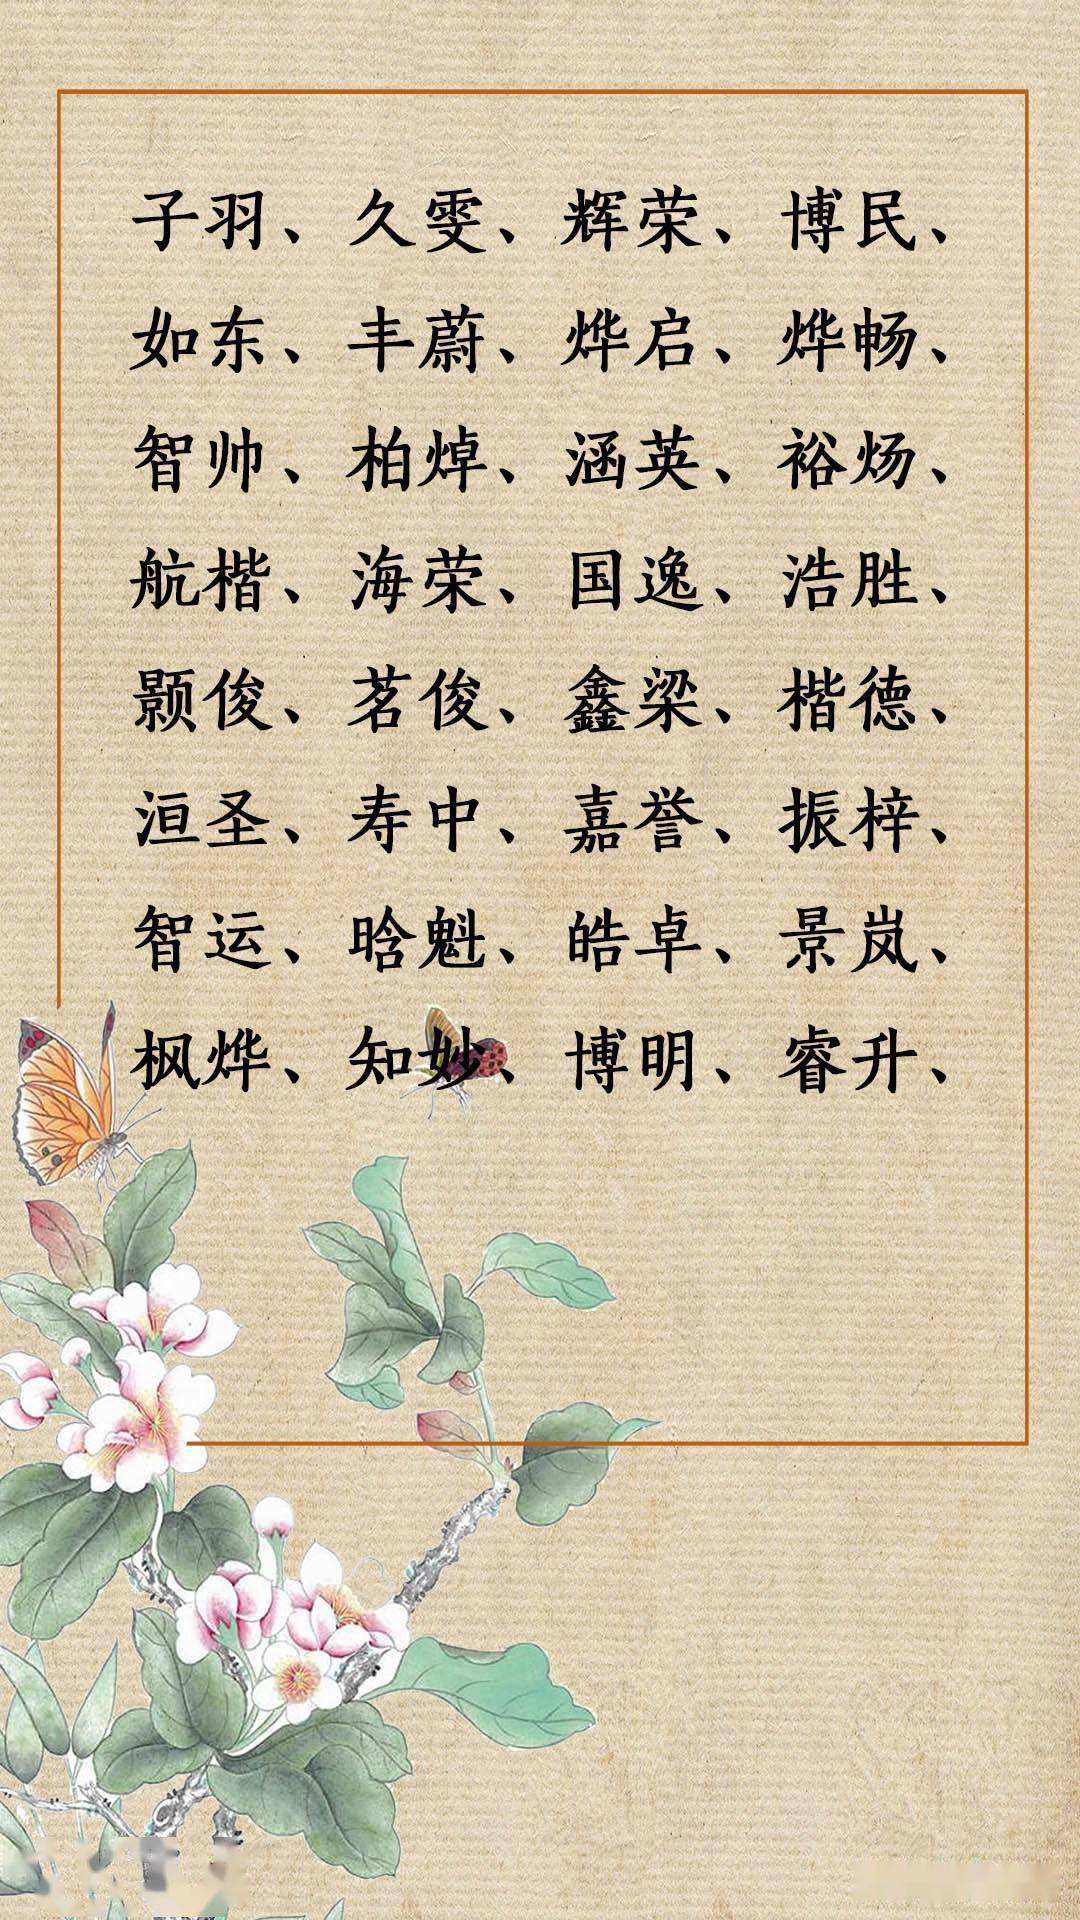 子羽、久雯、辉荣、博民、
如东、丰蔚、烨启、烨畅、
智帅、柏焯、涵英、裕炀、
航楷、海荣、国逸、浩胜、
颢俊、茗俊、鑫梁、楷德、
洹圣、寿中、嘉誉、振梓、
智运、晗魁、皓卓、景岚、
枫烨、知妙、博明、睿升、